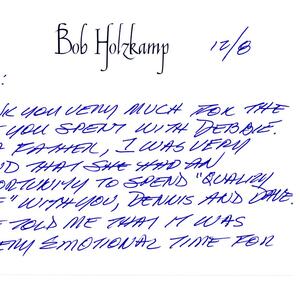 Bob Holzkamp 12/8
:
K YOU VERY MUCH FOR THE
YOU SPENT WITH DEBBIE.
FATHER, I WAS VERY
D THAT SHE HAD AN
ORTUNITY TO SPEND "QUALITY
E" WITH YOU, DENNIS AND DAVE.
E TOLD ME THAT IT WAS
ERY EMOTIONAL TIME FOR